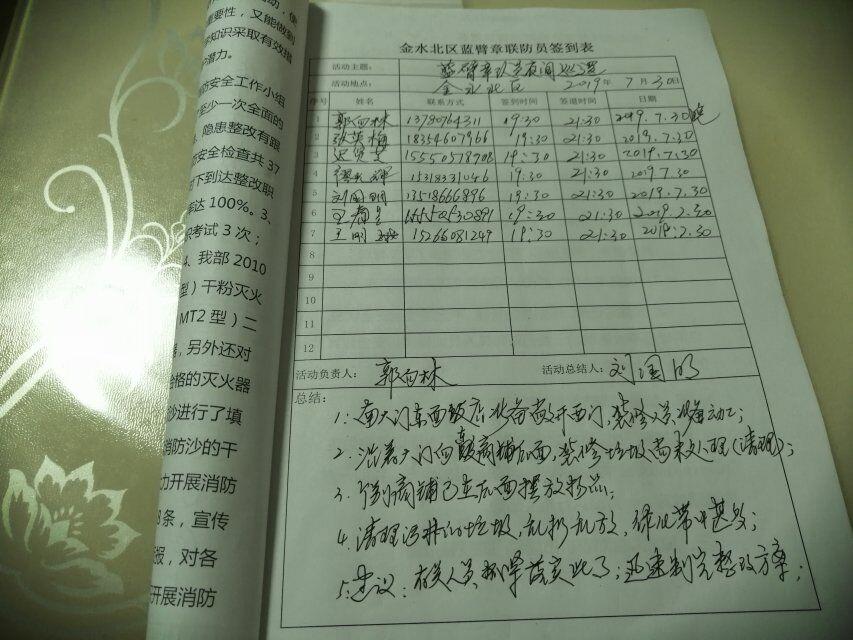 重要性，又能做到
知识采取有效措
潜力。
安全工作小组
至少一次全面的
隐患整改有跟
安全检查共 37
下到达整改职
率达 100%。3、
考试 3 次；
4、我部 2010
型）干粉灭火
MT2 型）二
，另外还对
合格的灭火器
沙进行了填
消防沙的干
力开展消防
8条，宣传
报，对各
开展消防
金水北区蓝臂章联防员签到表
活动主题： 蓝臂章队员夜间巡逻
活动地点： 金水北区 2019年 7月30日
序号 姓名 联系方式 签到时间 签退时间 日期
1 郭向林 13780764311 19:30 21:30 2019.7.30晚
2 张英梅 18354607966 19:30 21:30 2019.7.30
3 15550578708 19:30 21:30 2019.7.30
4 15318331046 19:30 21:30 2019.7.30
5 刘国明 13518666896 19:30 21:30 2019.7.30
6 19:30 21:30 2019.7.30
7 王明 15266081249 19:30 21:30 2019.7.30
8
9
10
11
12
活动负责人： 郭向林 活动总结人： 刘国明
总结：
1、南大门东西饭店，准备敞开西门，装修人员准备动工；
2、沿着大门向商铺后面，装修垃圾尚未处理（清理）；
3、个别商铺已在后面摆放物品；
4、清理的垃圾，乱扔乱放，绿化带中甚多；
5、建议：有关人员抓紧落实此事；迅速制定整改方案；